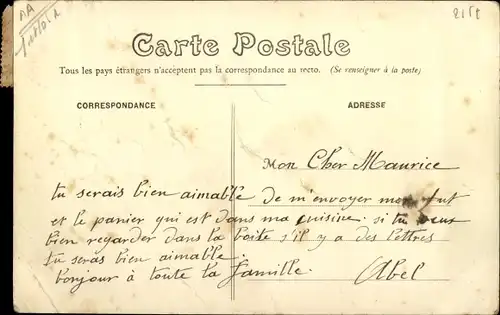 Carte Postale
Tous les pays étrangers n'acceptent pas la correspondance au recto. (Se renseigner à la poste)
CORRESPONDANCE
ADRESSE
Mon Cher Maurice
tu serais bien aimable de m'envoyer mon fut
et le panier qui est dans ma cuisine. si tu veux
bien regarder dans la boite s'il y a des lettres
tu seras bien aimable.
bonjour à toute la famille.
Abel